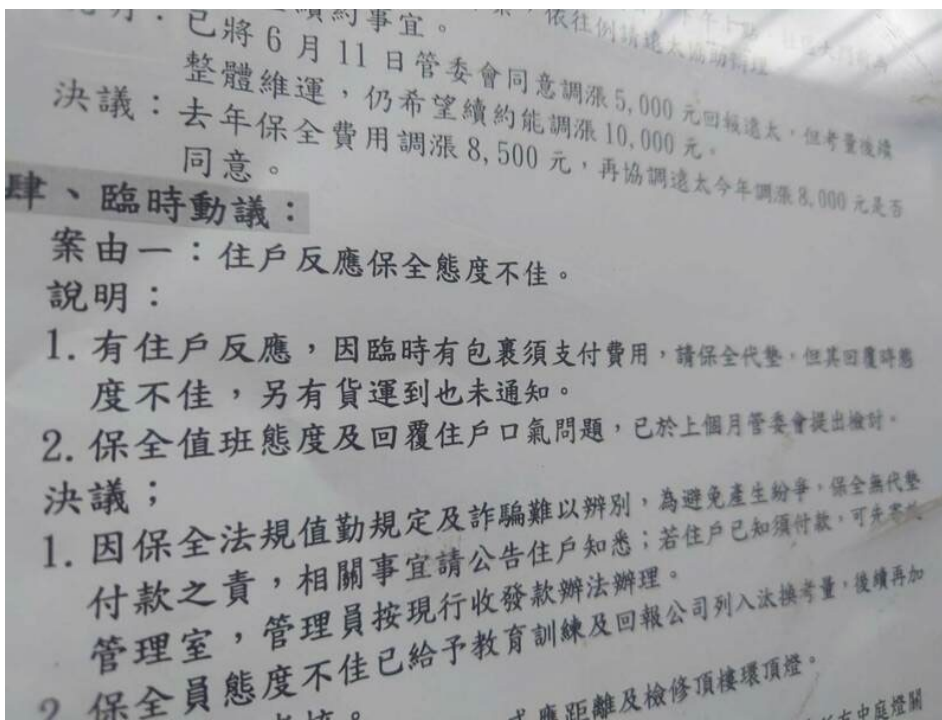 續約事宜。依往例請遠太協助辦理
已將6月11日管委會同意調漲5,000元回報遠太,但考量後續
整體維運,仍希望續約能調漲10,000元。
決議:去年保全費用調漲8,500元,再協調遠太今年調漲8,000元是否
同意。
肆、臨時動議:
案由一:住戶反應保全態度不佳。
說明:
1. 有住戶反應,因臨時有包裹須支付費用,請保全代墊,但其回覆時態
度不佳,另有貨運到也未通知。
2. 保全值班態度及回覆住戶口氣問題,已於上個月管委會提出檢討。
決議;
1. 因保全法規值勤規定及詐騙難以辨別,為避免產生紛爭,保全無代墊
付款之責,相關事宜請公告住戶知悉;若住戶已知須付款,可先寄放
管理室,管理員按現行收發款辦法辦理。
2. 保全員態度不佳已給予教育訓練及回報公司列入汰換考量,後續再加
應距離及檢修頂樓環頂燈。
中庭燈關